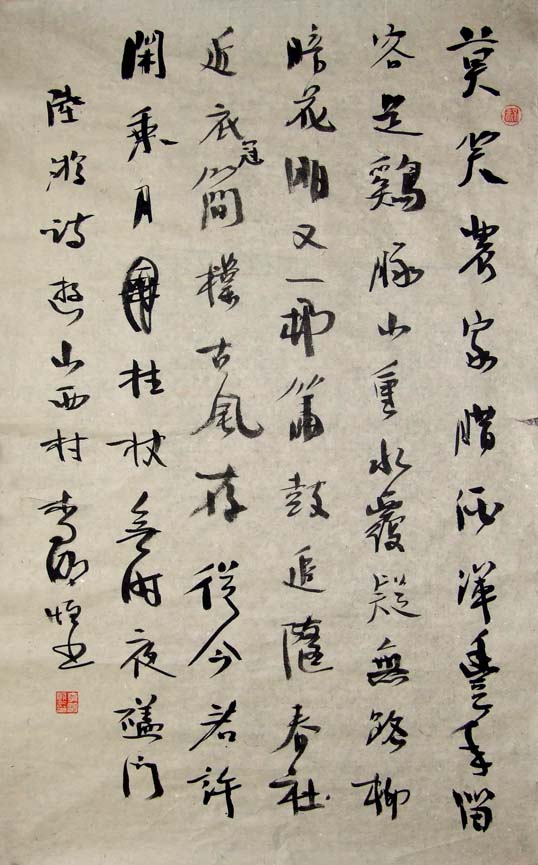 莫笑農家腊酒渾豐年留
客足鷄豚山重水覆疑無路柳
暗花明又一邨簫鼓追隨春社
近衣冠簡樸古風存從今若許
閑乘月拄杖無時夜磕门
陸游詩遊山西村李明恒书